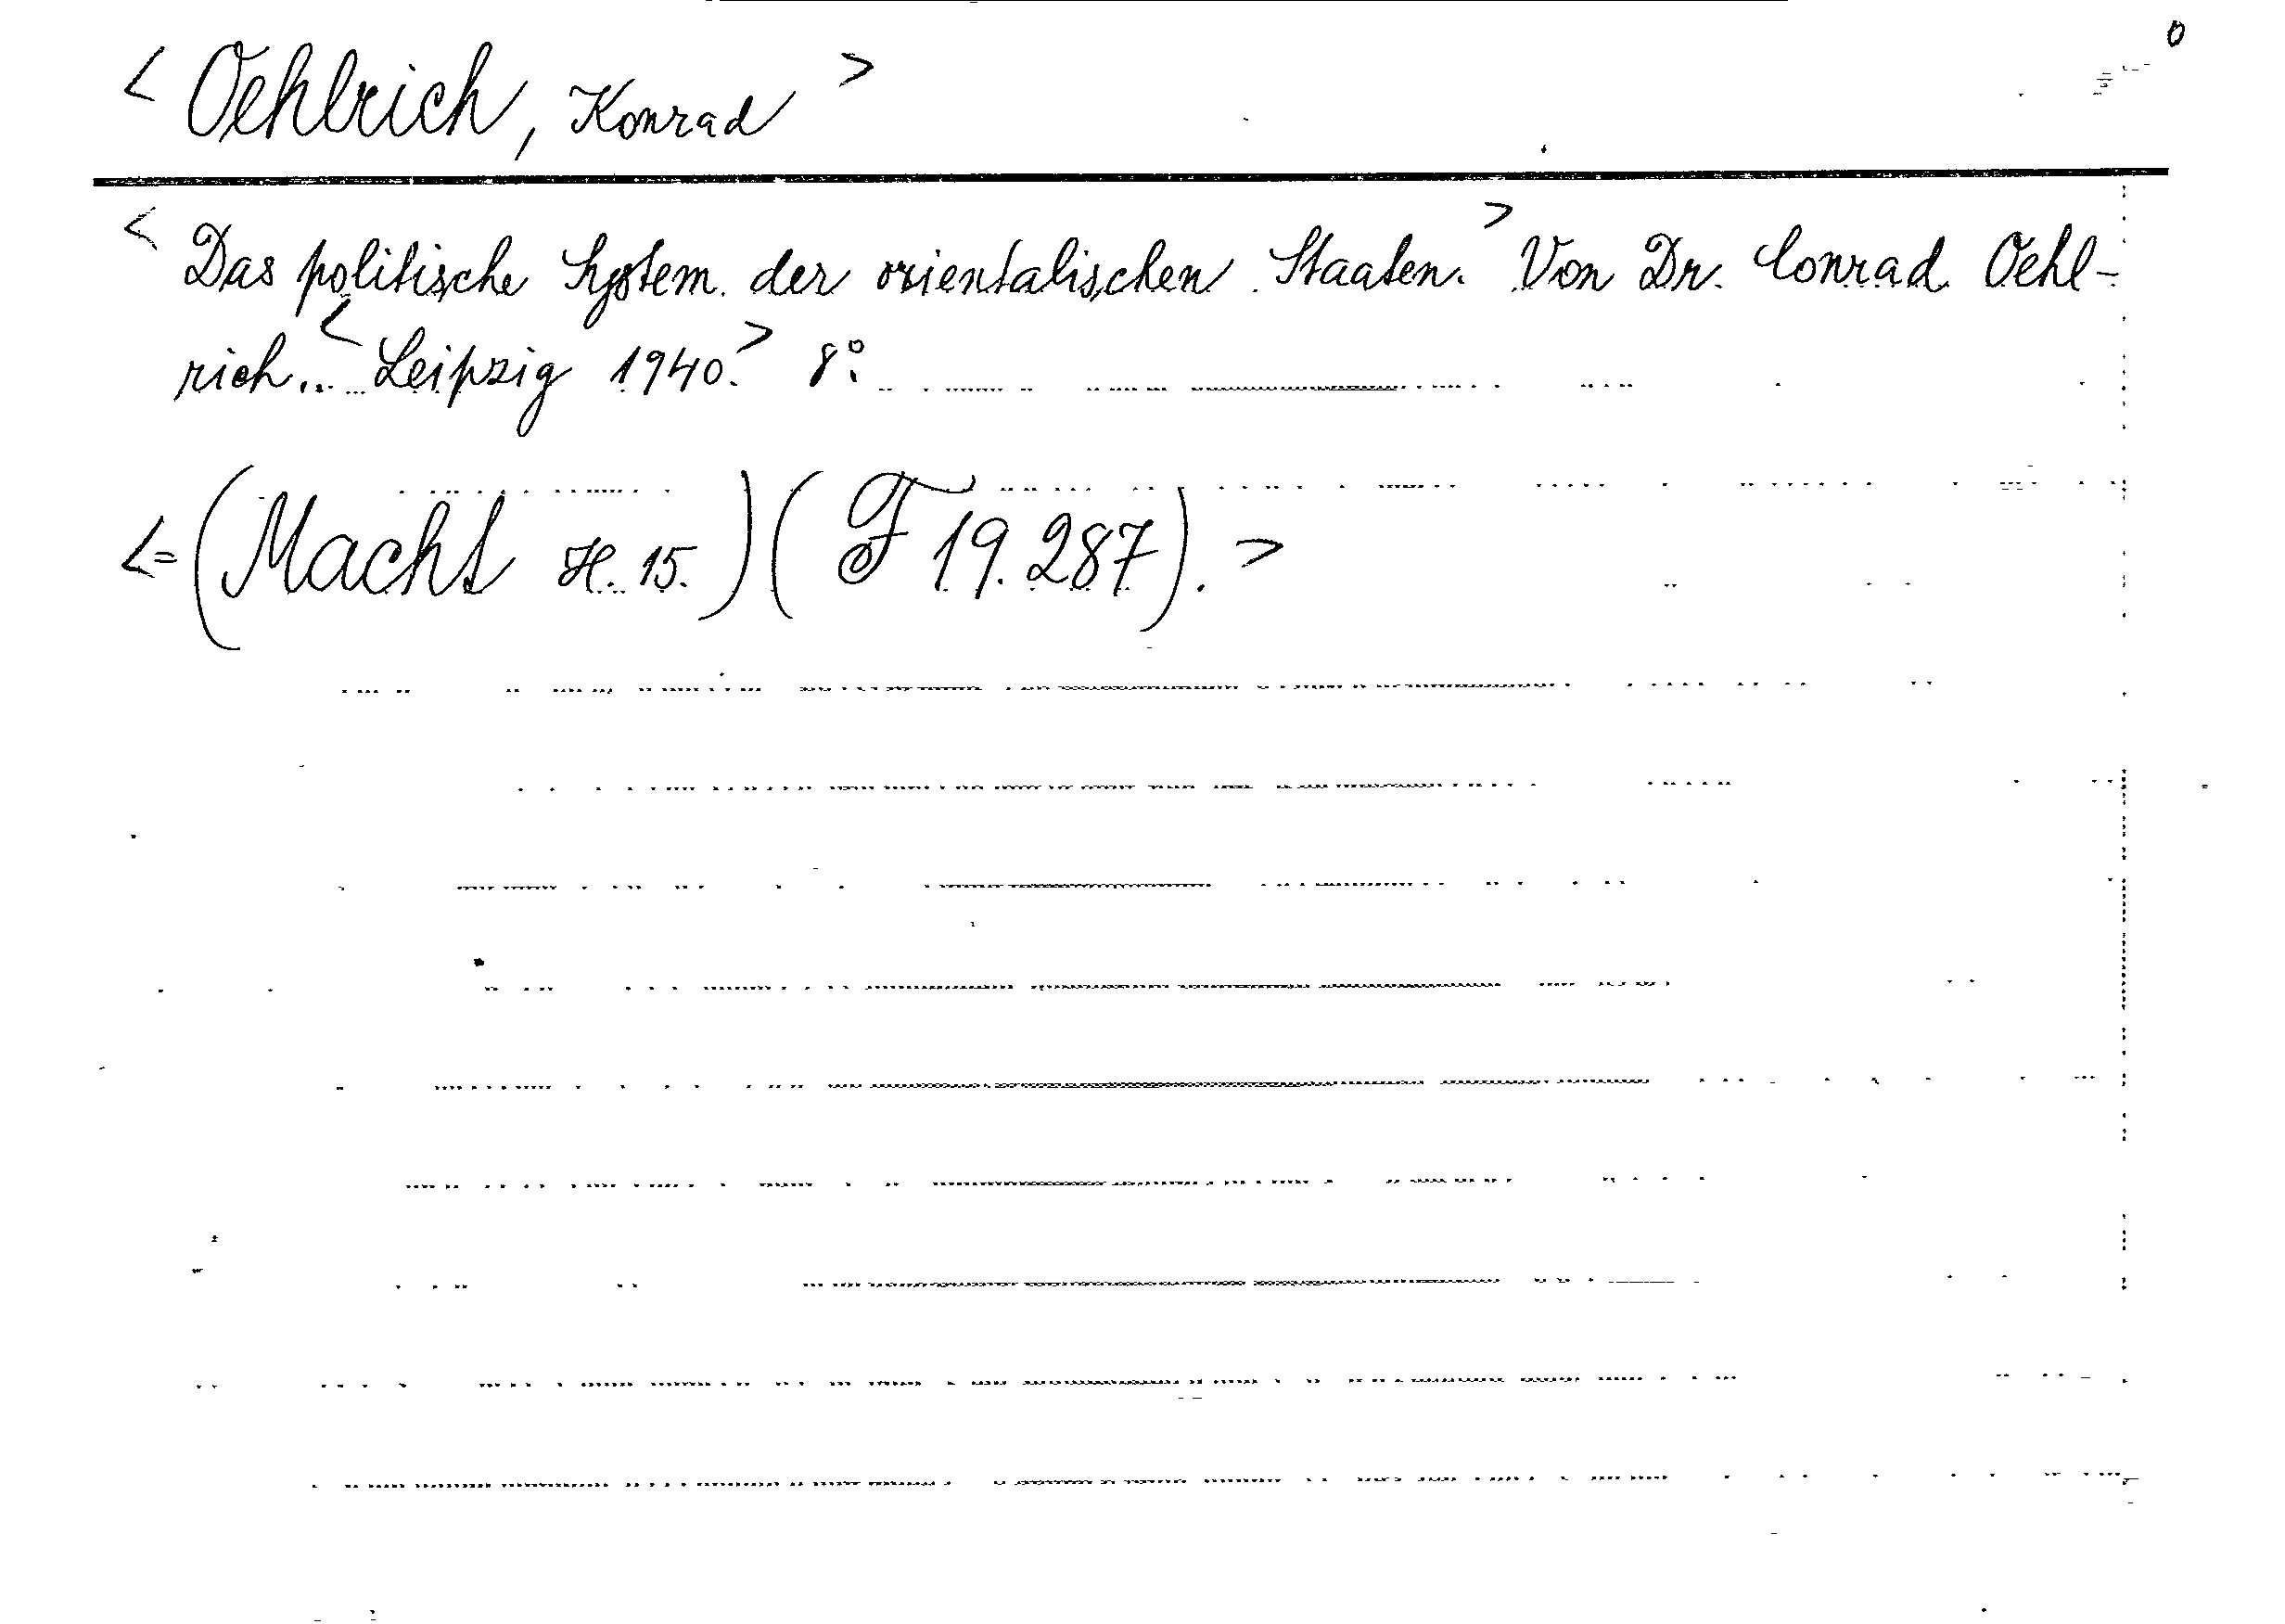 0
< Oehlrich, Konrad >
< Das politische System der orientalischen Staaten. > Von Dr. Conrad Oehl-
rich... < Leipzig 1940. > 8°.
<= (Macht H. 15.) (F 19.287). >